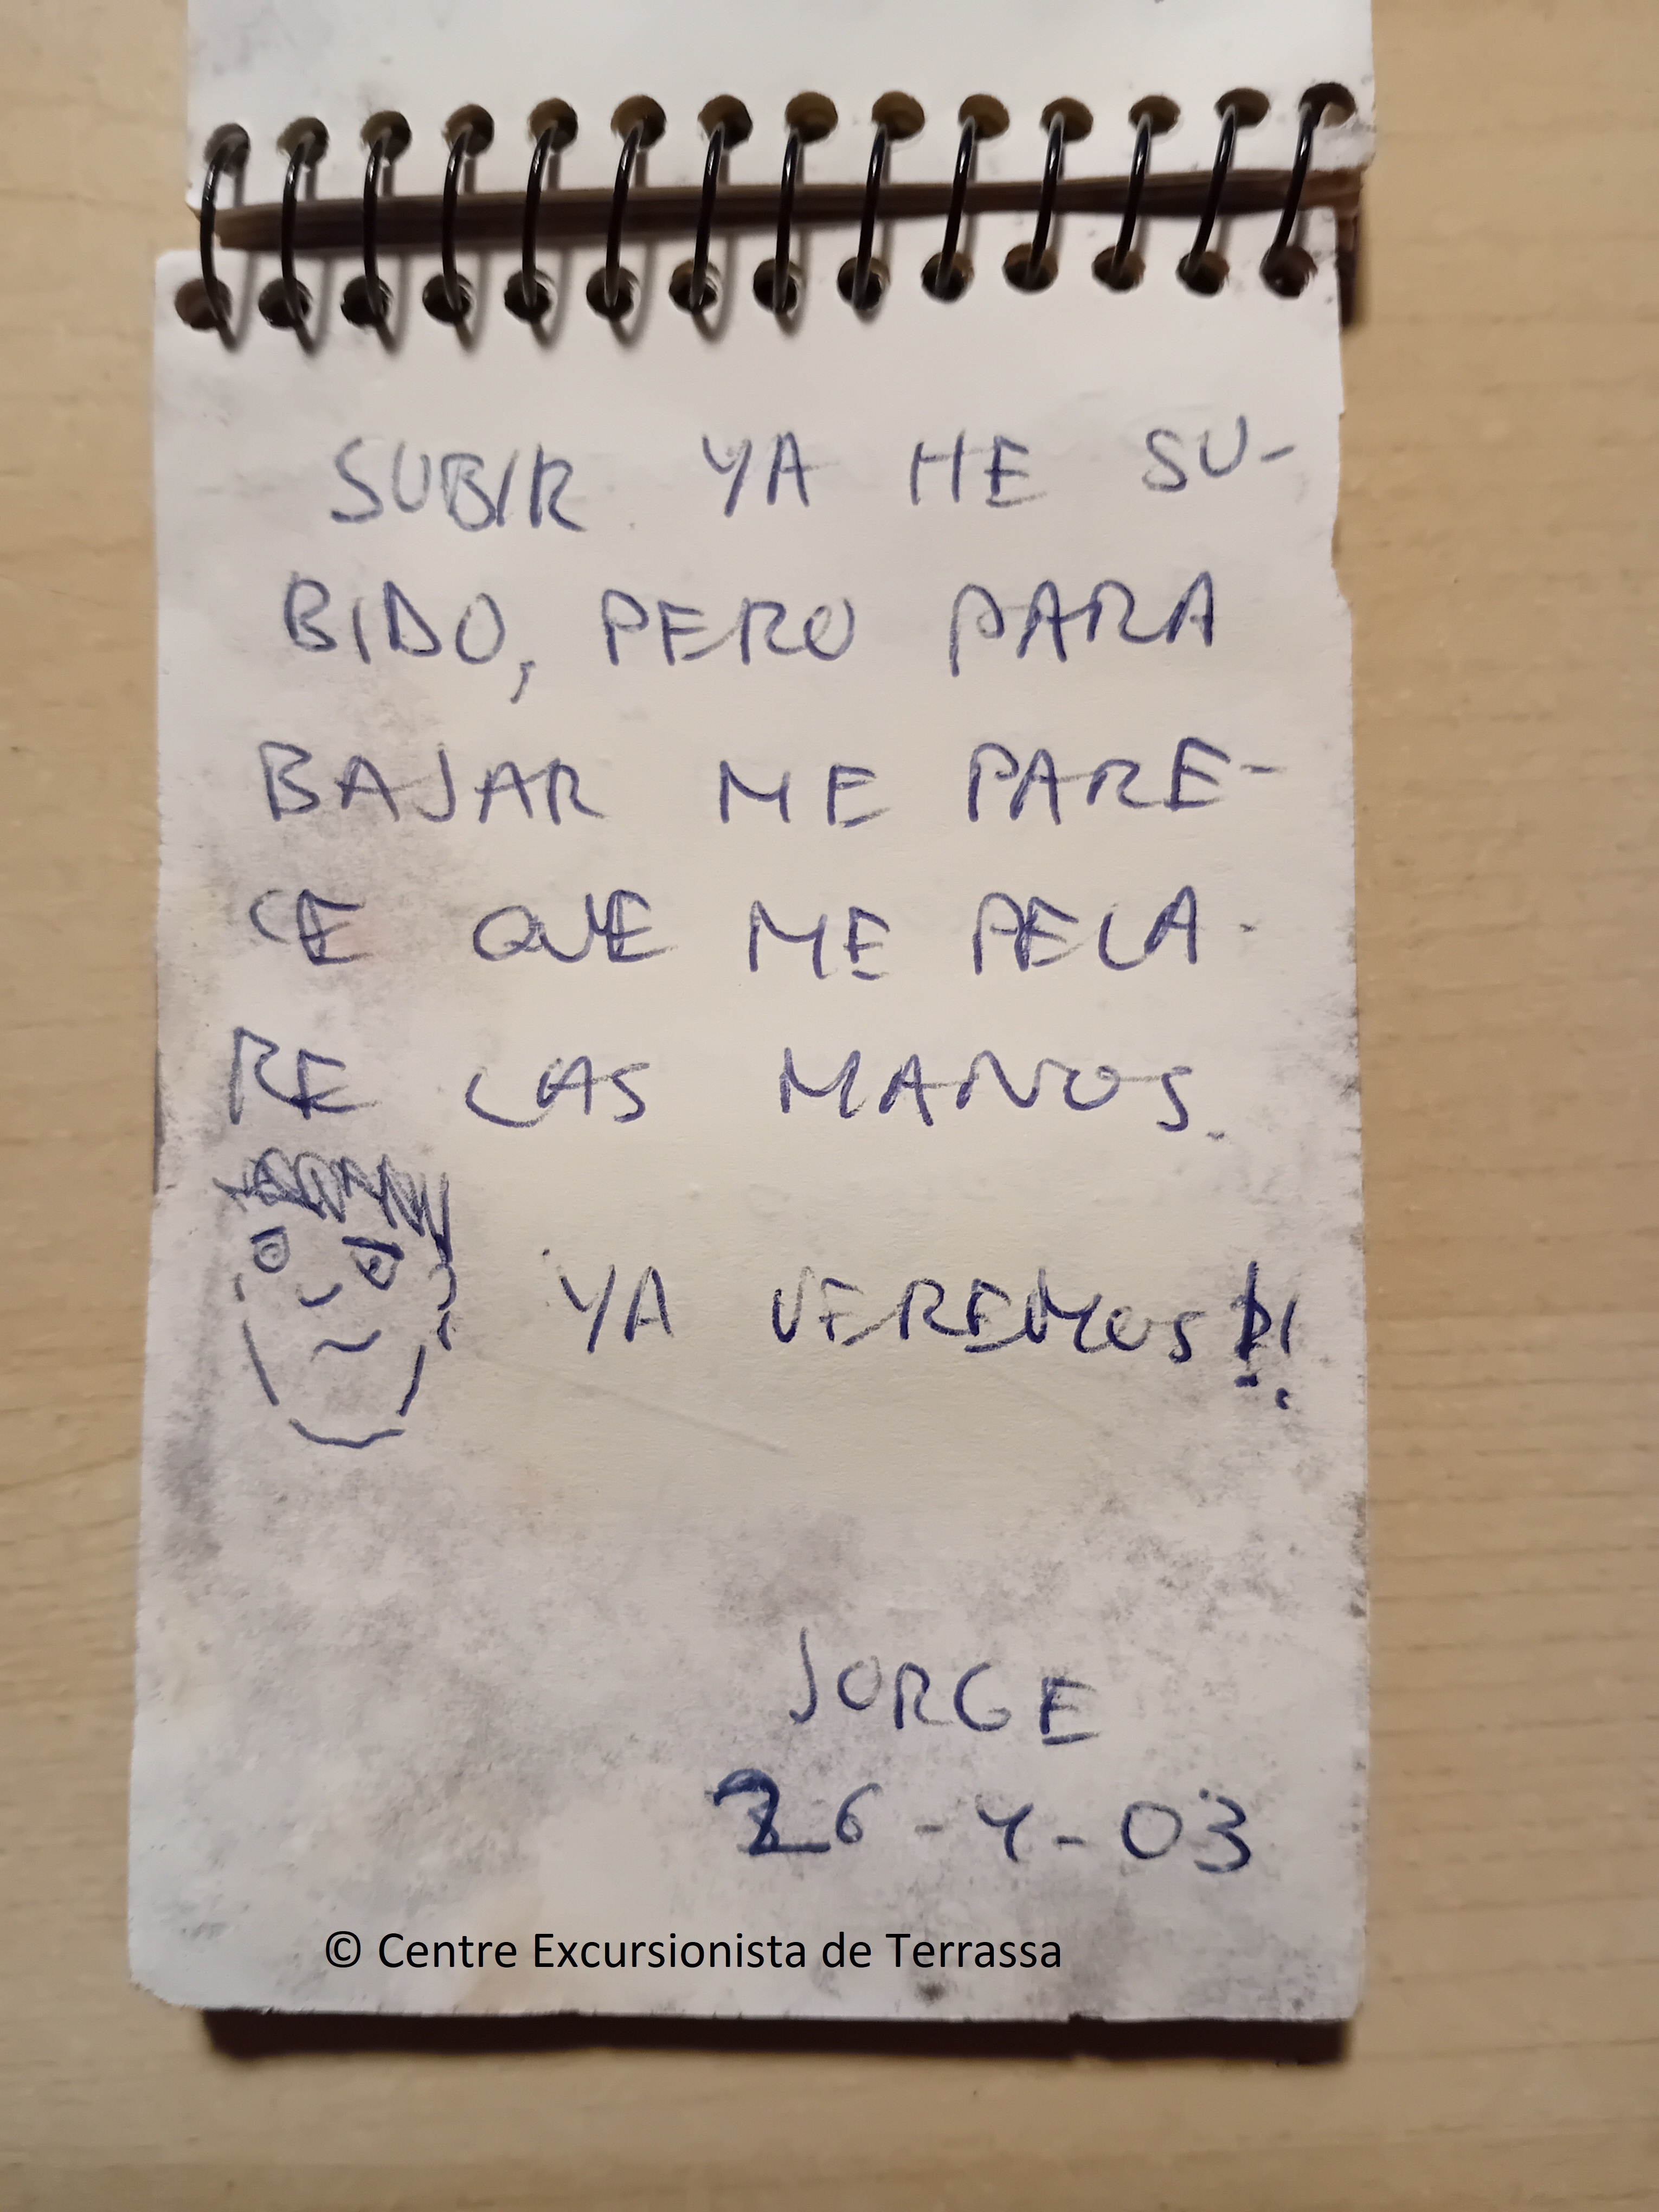 SUBIR YA HE SU-
BIDO, PERO PARA
BAJAR ME PARE-
CE QUE ME PELA-
RE LAS MANOS.
YA VEREMOS!!
JORGE
26-4-03
© Centre Excursionista de Terrassa